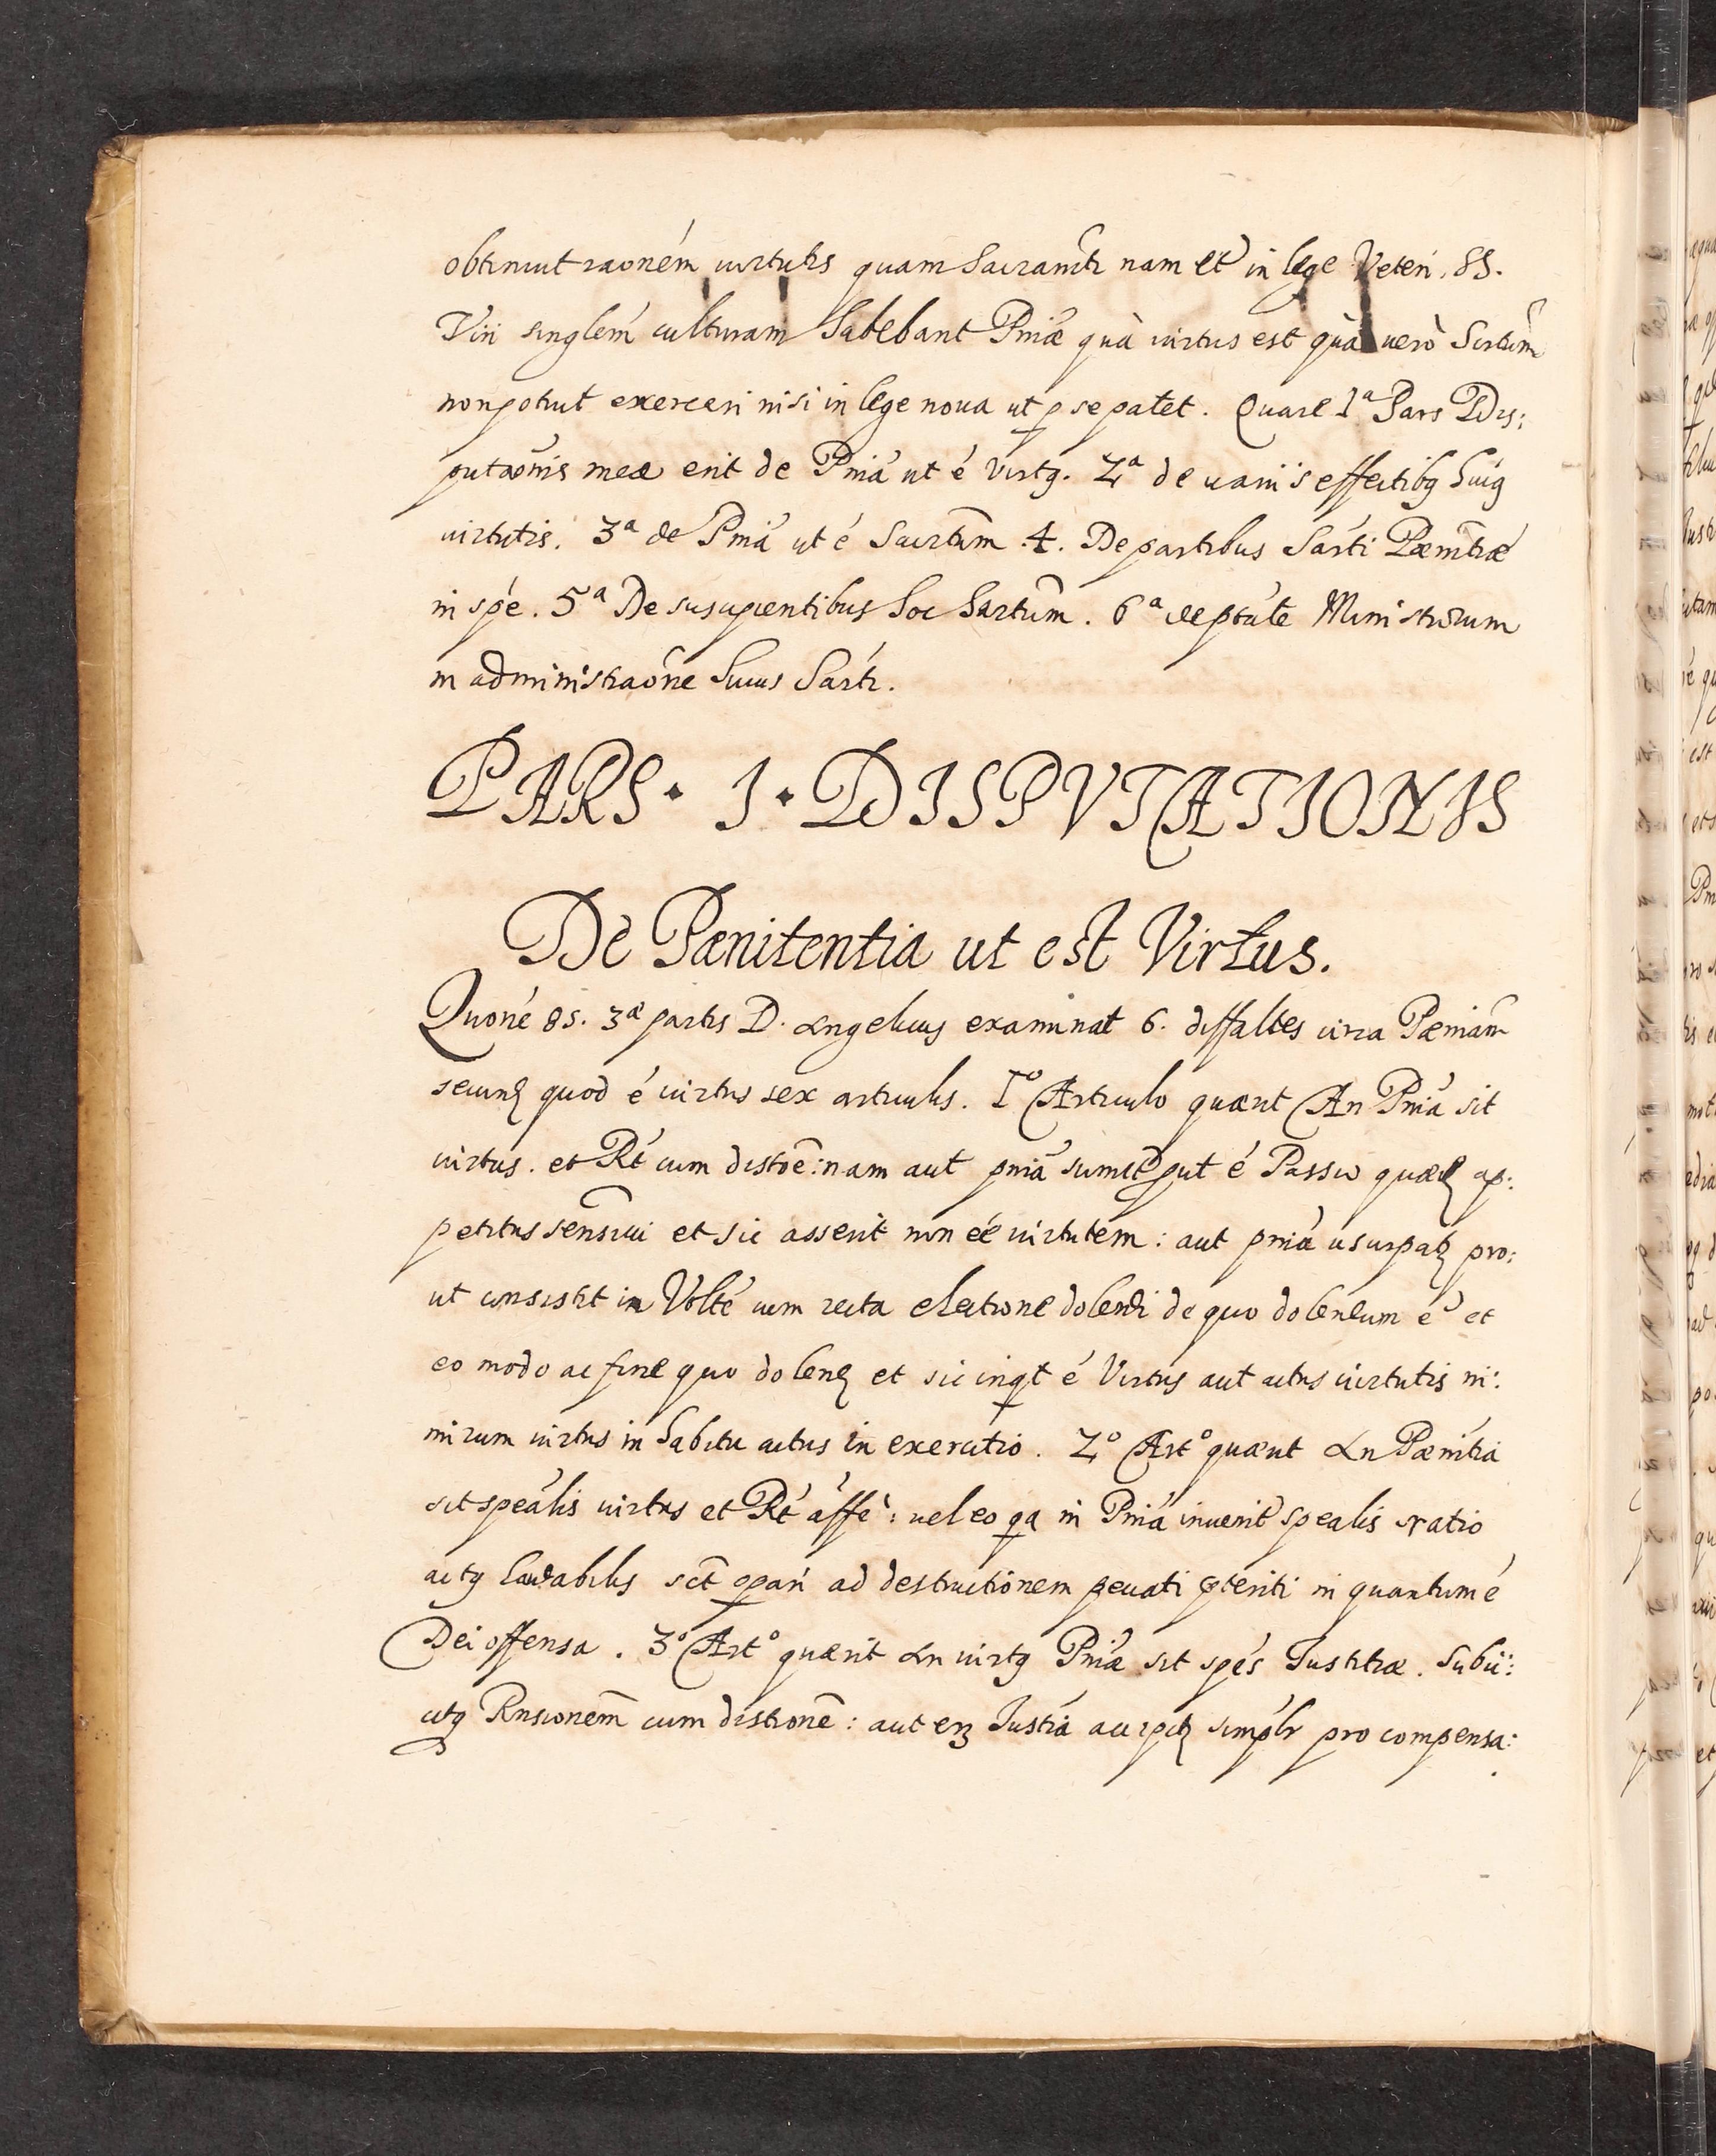 obtinuit raoném uirtutis quam Sacramti nam et in lege Veteri. SS.
Viri singlem culturam habebant Pniæ quà uirtus est quà uerò Sartum
non potuit exerceri nisi in lege noua ut p se patet. Quare 1ª Pars Dis:
putaonis meæ erit de Pniá ut é Virtq. 2ª de uariis effectibq huiq
uirtutis. 3ª de Pniá ut é Sacrtum. 4. De partibus Sarti Pæmtiæ
in spé. 5ª De suscipientibus hoc Sartum. 6ª de ptáte Ministrorum
in administraone huius Sarti.
PARS · I · DISPVTATIONIS
De Pænitentia ut est Virtus.
Quoné 85. 3æ partis D. Angelicus examinat 6. diffaltes circa Pæniam
secund quod é uirtus sex articulis. 1º Articulo quærit An Pniá sit
uirtus. et Ré cum distoe: nam aut pniá sumit put é Passio quæd ap:
petitus sensiui et sic asserit non eé uirtutem: aut pniá usurpat pro:
ut consistit in Volté cum recta electione dolendi de quo dolendum é et
eo modo ac fine quo dolend et sic inqt é Virtus aut actus uirtutis ni:
mirum uirtus in habitu actus in exercitio. 2º Artº quærit An Pænitia
sit speális uirtus et Ré affé: uel eo qa in Pniá inuenit spealis ratio
actq laudabilis sct opari ad destructionem peccati pteriti in quantum é
Dei offensa. 3º Artº quærit An uirtq Pniæ sit spés Iustitiæ. Subii:
citq Rnsionem cum distione: aut en Iustiá accipit simplr pro compensa: